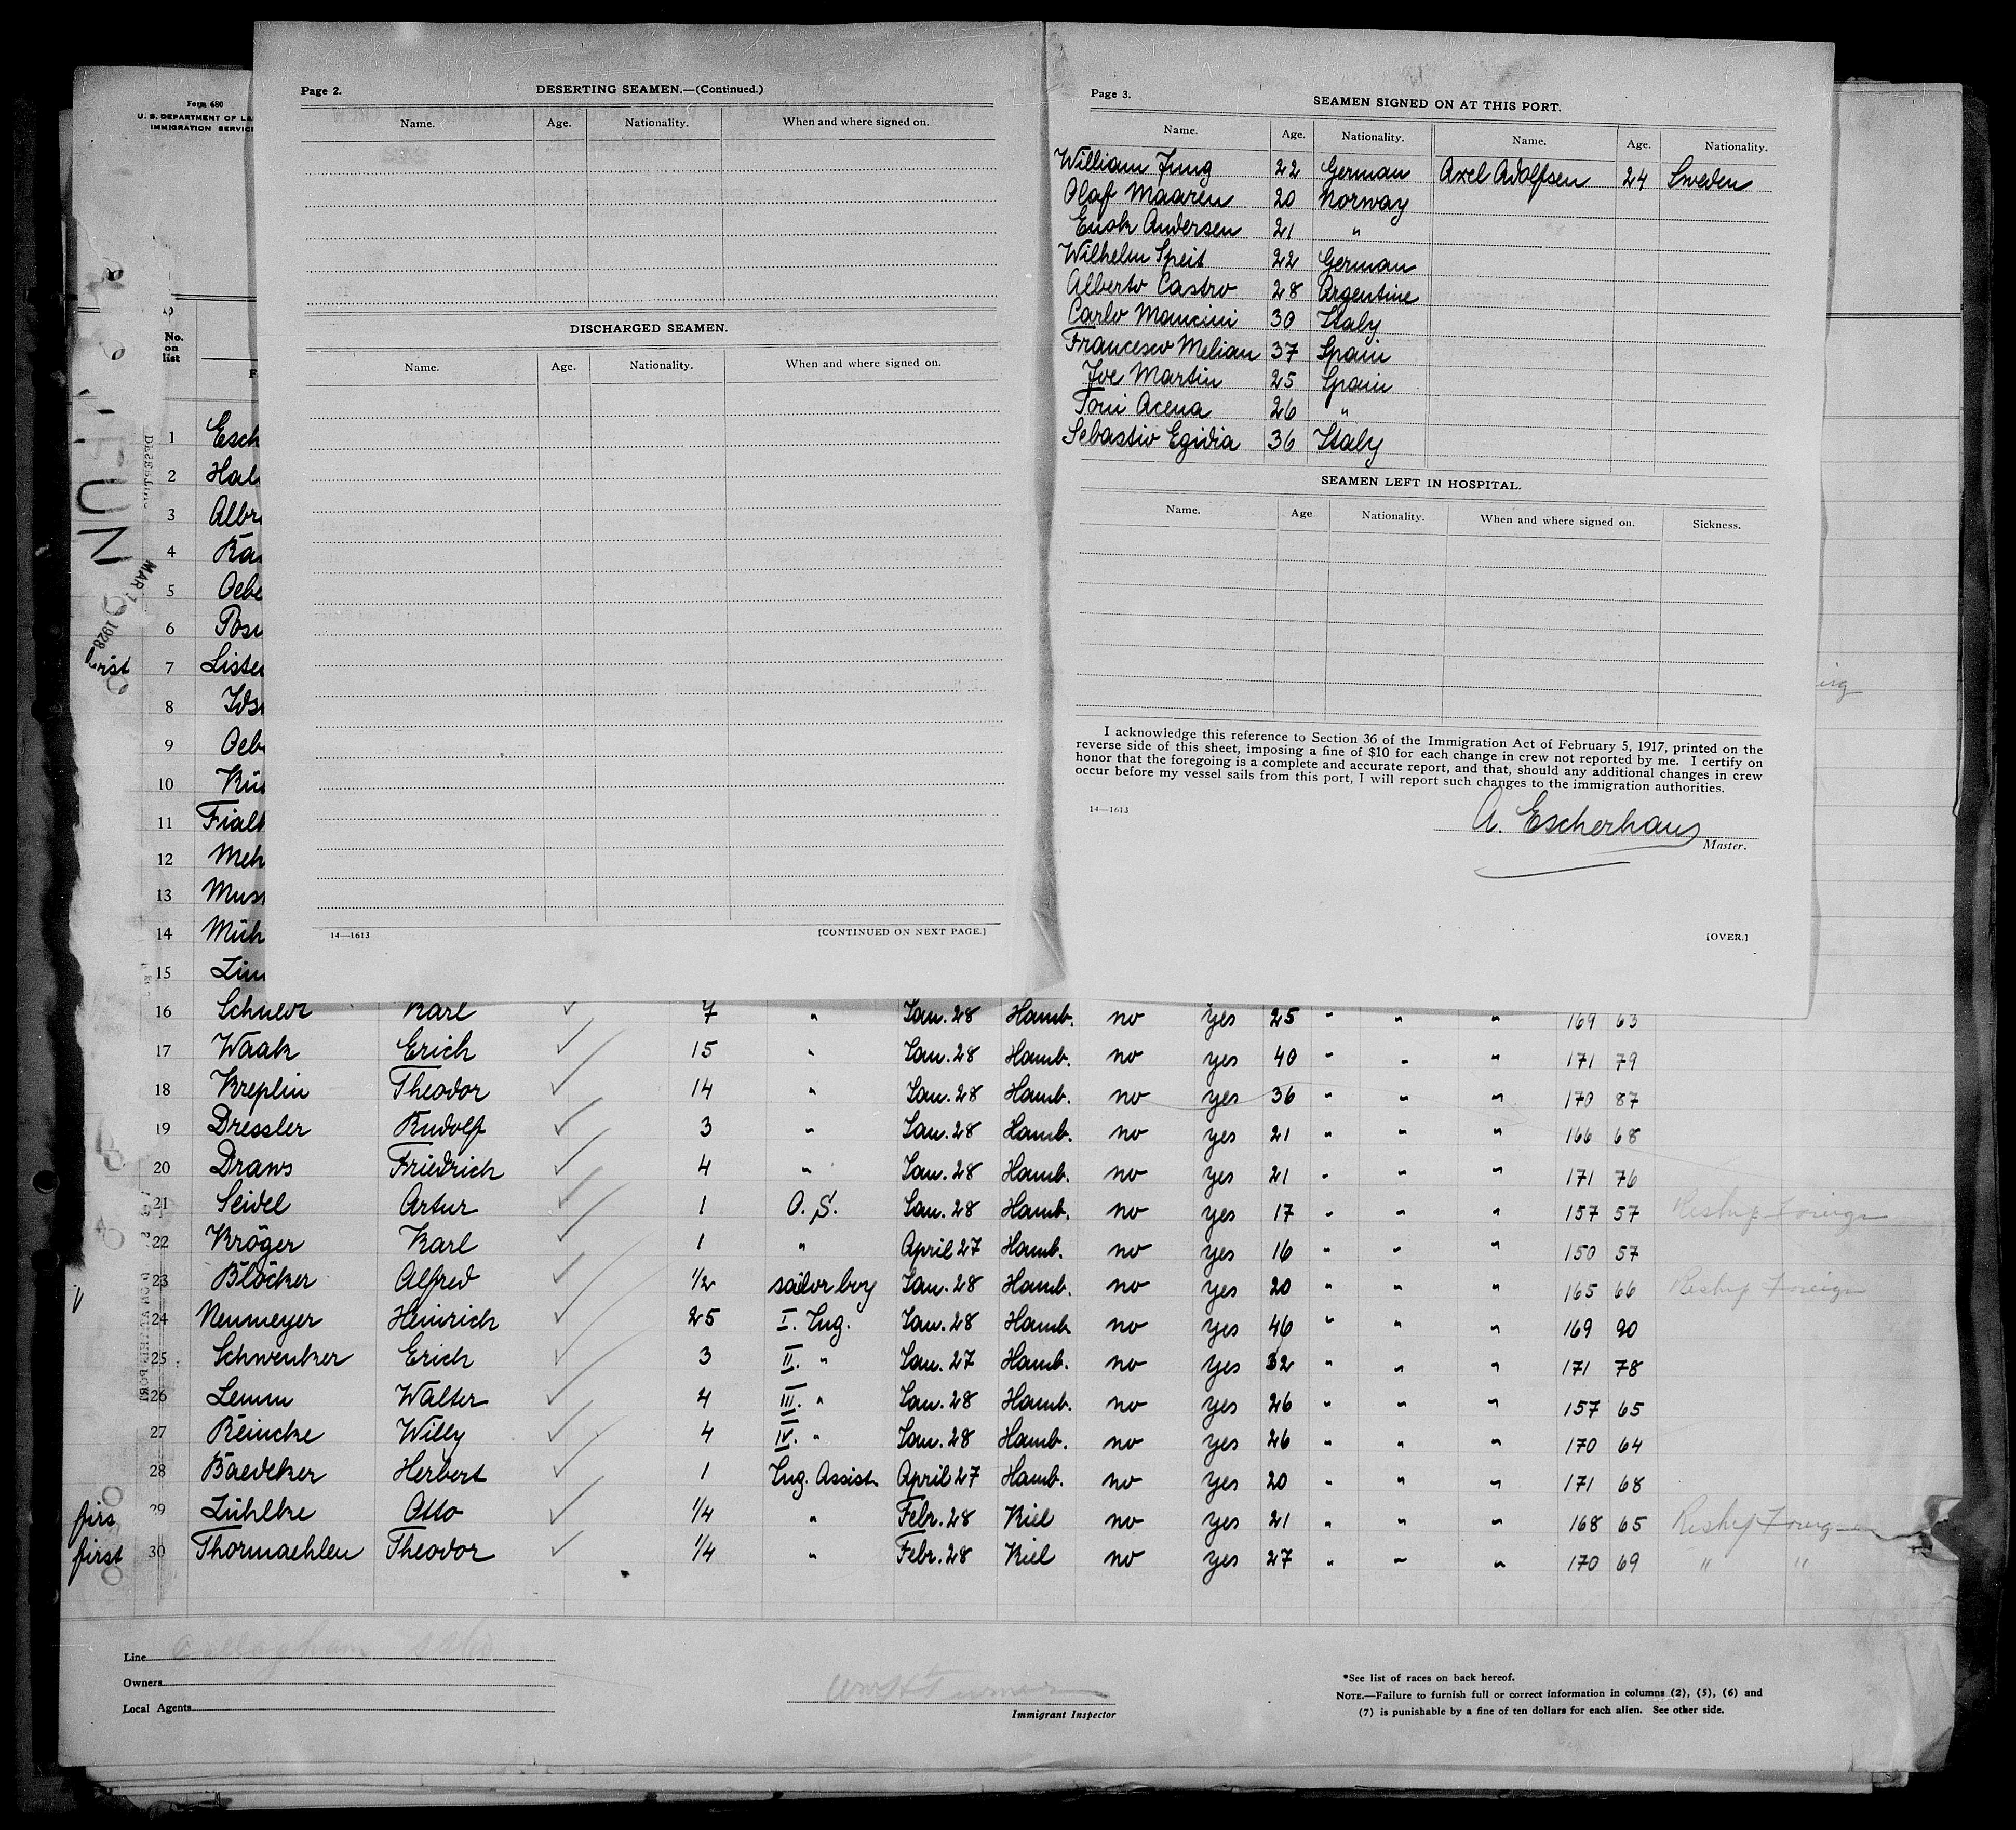 Form 680
U. S. DEPARTMENT OF LA
IMMIGRATION SERVICE
No. on list
MAR 1928
1 Esch
2 Hal
3 Albr
4 Ka
5 Oebe
6 Posi
7 Liste
8
9 Oeb
10 Kü
11 Fialk
12 Meh
13 Mus
14 Müh
15
Page 2.
DESERTING SEAMEN.—(Continued.)
Name. Age. Nationality. When and where signed on.
DISCHARGED SEAMEN.
Name. Age. Nationality. When and where signed on.
14—1613 [CONTINUED ON NEXT PAGE.]
Page 3.
SEAMEN SIGNED ON AT THIS PORT.
Name. Age. Nationality. Name. Age. Nationality.
William Jung 22 German Axel Adolfsen 24 Sweden
Olaf Maaren 20 Norway
Enok Andersen 21 "
Wilhelm Speit 22 German
Alberto Castro 28 Argentine
Carlo Mancini 30 Italy
Francesco Melian 37 Spain
Joe Martin 25 Spain
Toni Acena 26 "
Sebastio Egidia 36 Italy
SEAMEN LEFT IN HOSPITAL.
Name. Age Nationality. When and where signed on. Sickness.
I acknowledge this reference to Section 36 of the Immigration Act of February 5, 1917, printed on the
reverse side of this sheet, imposing a fine of $10 for each change in crew not reported by me. I certify on
honor that the foregoing is a complete and accurate report, and that, should any additional changes in crew
occur before my vessel sails from this port, I will report such changes to the immigration authorities.
14—1613
A. Escherhaus
Master.
[OVER.]
16 Karl 7 " Jan. 28 Hamb. no yes 25 " " " 169 63
17 Waak Erich 15 " Jan. 28 Hamb. no yes 40 " " " 171 79
18 Kreplin Theodor 14 " Jan. 28 Hamb. no yes 36 " " " 170 87
19 Dressler Rudolf 3 " Jan. 28 Hamb. no yes 21 " " " 166 68
20 Draws Friedrich 4 " Jan. 28 Hamb. no yes 21 " " " 171 76
21 Seidel Artur 1 O. S. Jan. 28 Hamb. no yes 17 " " " 157 57 Reship Foreign
22 Kröger Karl 1 " April 27 Hamb. no yes 16 " " " 150 57
23 Blöcker Alfred 1/2 sailor boy Jan. 28 Hamb. no yes 20 " " " 165 66 Reship Foreign
24 Neumeyer Heinrich 25 I. Ing. Jan. 28 Hamb no yes 46 " " " 169 90
25 Schwenker Erich 3 II. " Jan. 27 Hamb. no yes 32 " " " 171 78
26 Lemm Walter 4 III. " Jan. 28 Hamb. no yes 26 " " " 157 65
27 Reincke Willy 4 IV. " Jan. 28 Hamb. no yes 26 " " " 170 64
28 Baedeker Herbert 1 Ing. Assist. April 27 Hamb. no yes 20 " " " 171 68
29 Lühlke Otto 1/4 " Febr. 28 Kiel no yes 21 " " " 168 65 Reship Foreign
first 30 Thormaehlen Theodor 1/4 " Febr. 28 Kiel no yes 27 " " " 170 69 " "
Line
Owners
Local Agents
Immigrant Inspector
*See list of races on back hereof.
NOTE.—Failure to furnish full or correct information in columns (2), (5), (6) and
(7) is punishable by a fine of ten dollars for each alien. See other side.